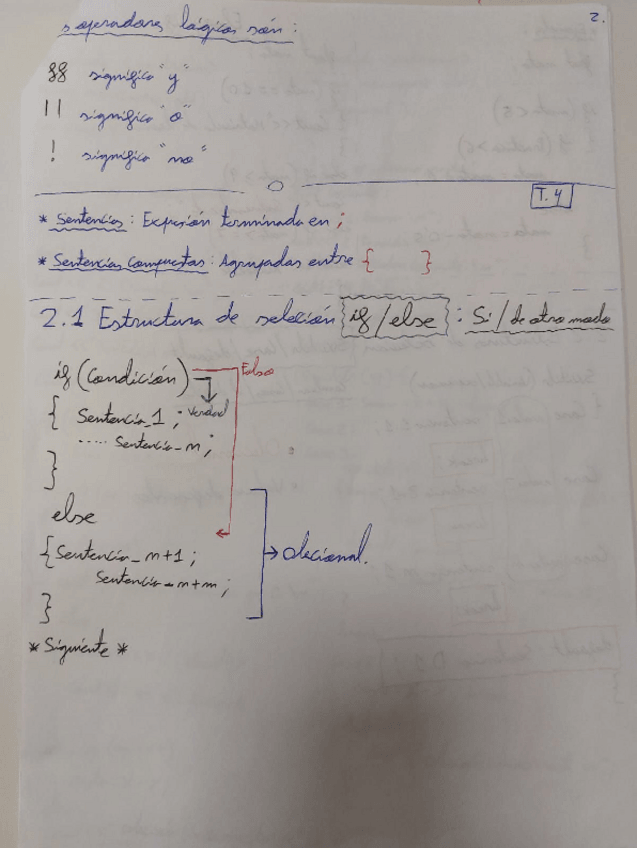 2.
s operadores lógicos són:
&& significa "y"
|| significa "o"
! significa "no"
T.4
* Sentencias: Expresión terminada en ;
* Sentencias Compuestas: Agrupadas entre { }
2.1 Estructura de selección if/else : Si/de otro modo
if (Condición) Falso
{ Sentencia_1 ; Verdad
..... Sentencia_m ;
}
else
{ Sentencia_m+1 ;
Sentencia_m+m ;
} Opcional.
* Siguiente *